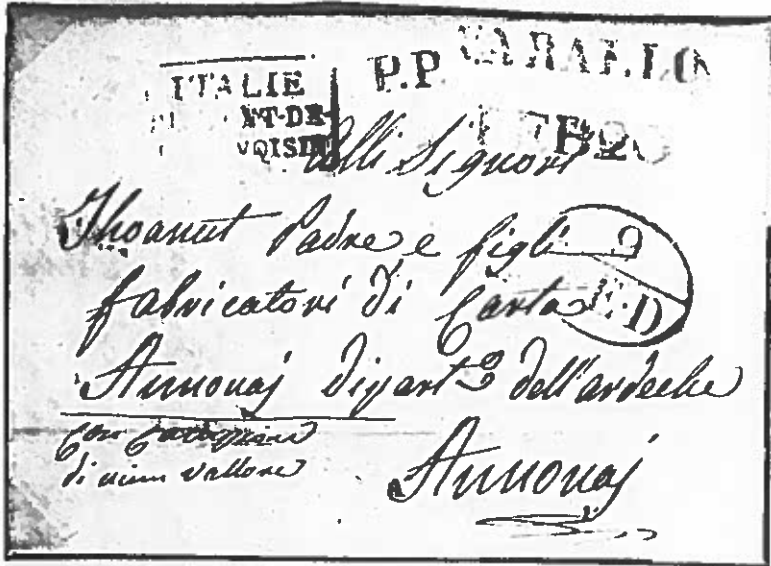 L'ITALIE
NT-DE-
VOISIN
P.P.
VARALLO
FEB
Alli Signori
Thoanut Padre e figli
fabricatori di Carta
Annonaj dipart.o dell'ardeche
Annonaj
con
di niun vallore
2
E.D